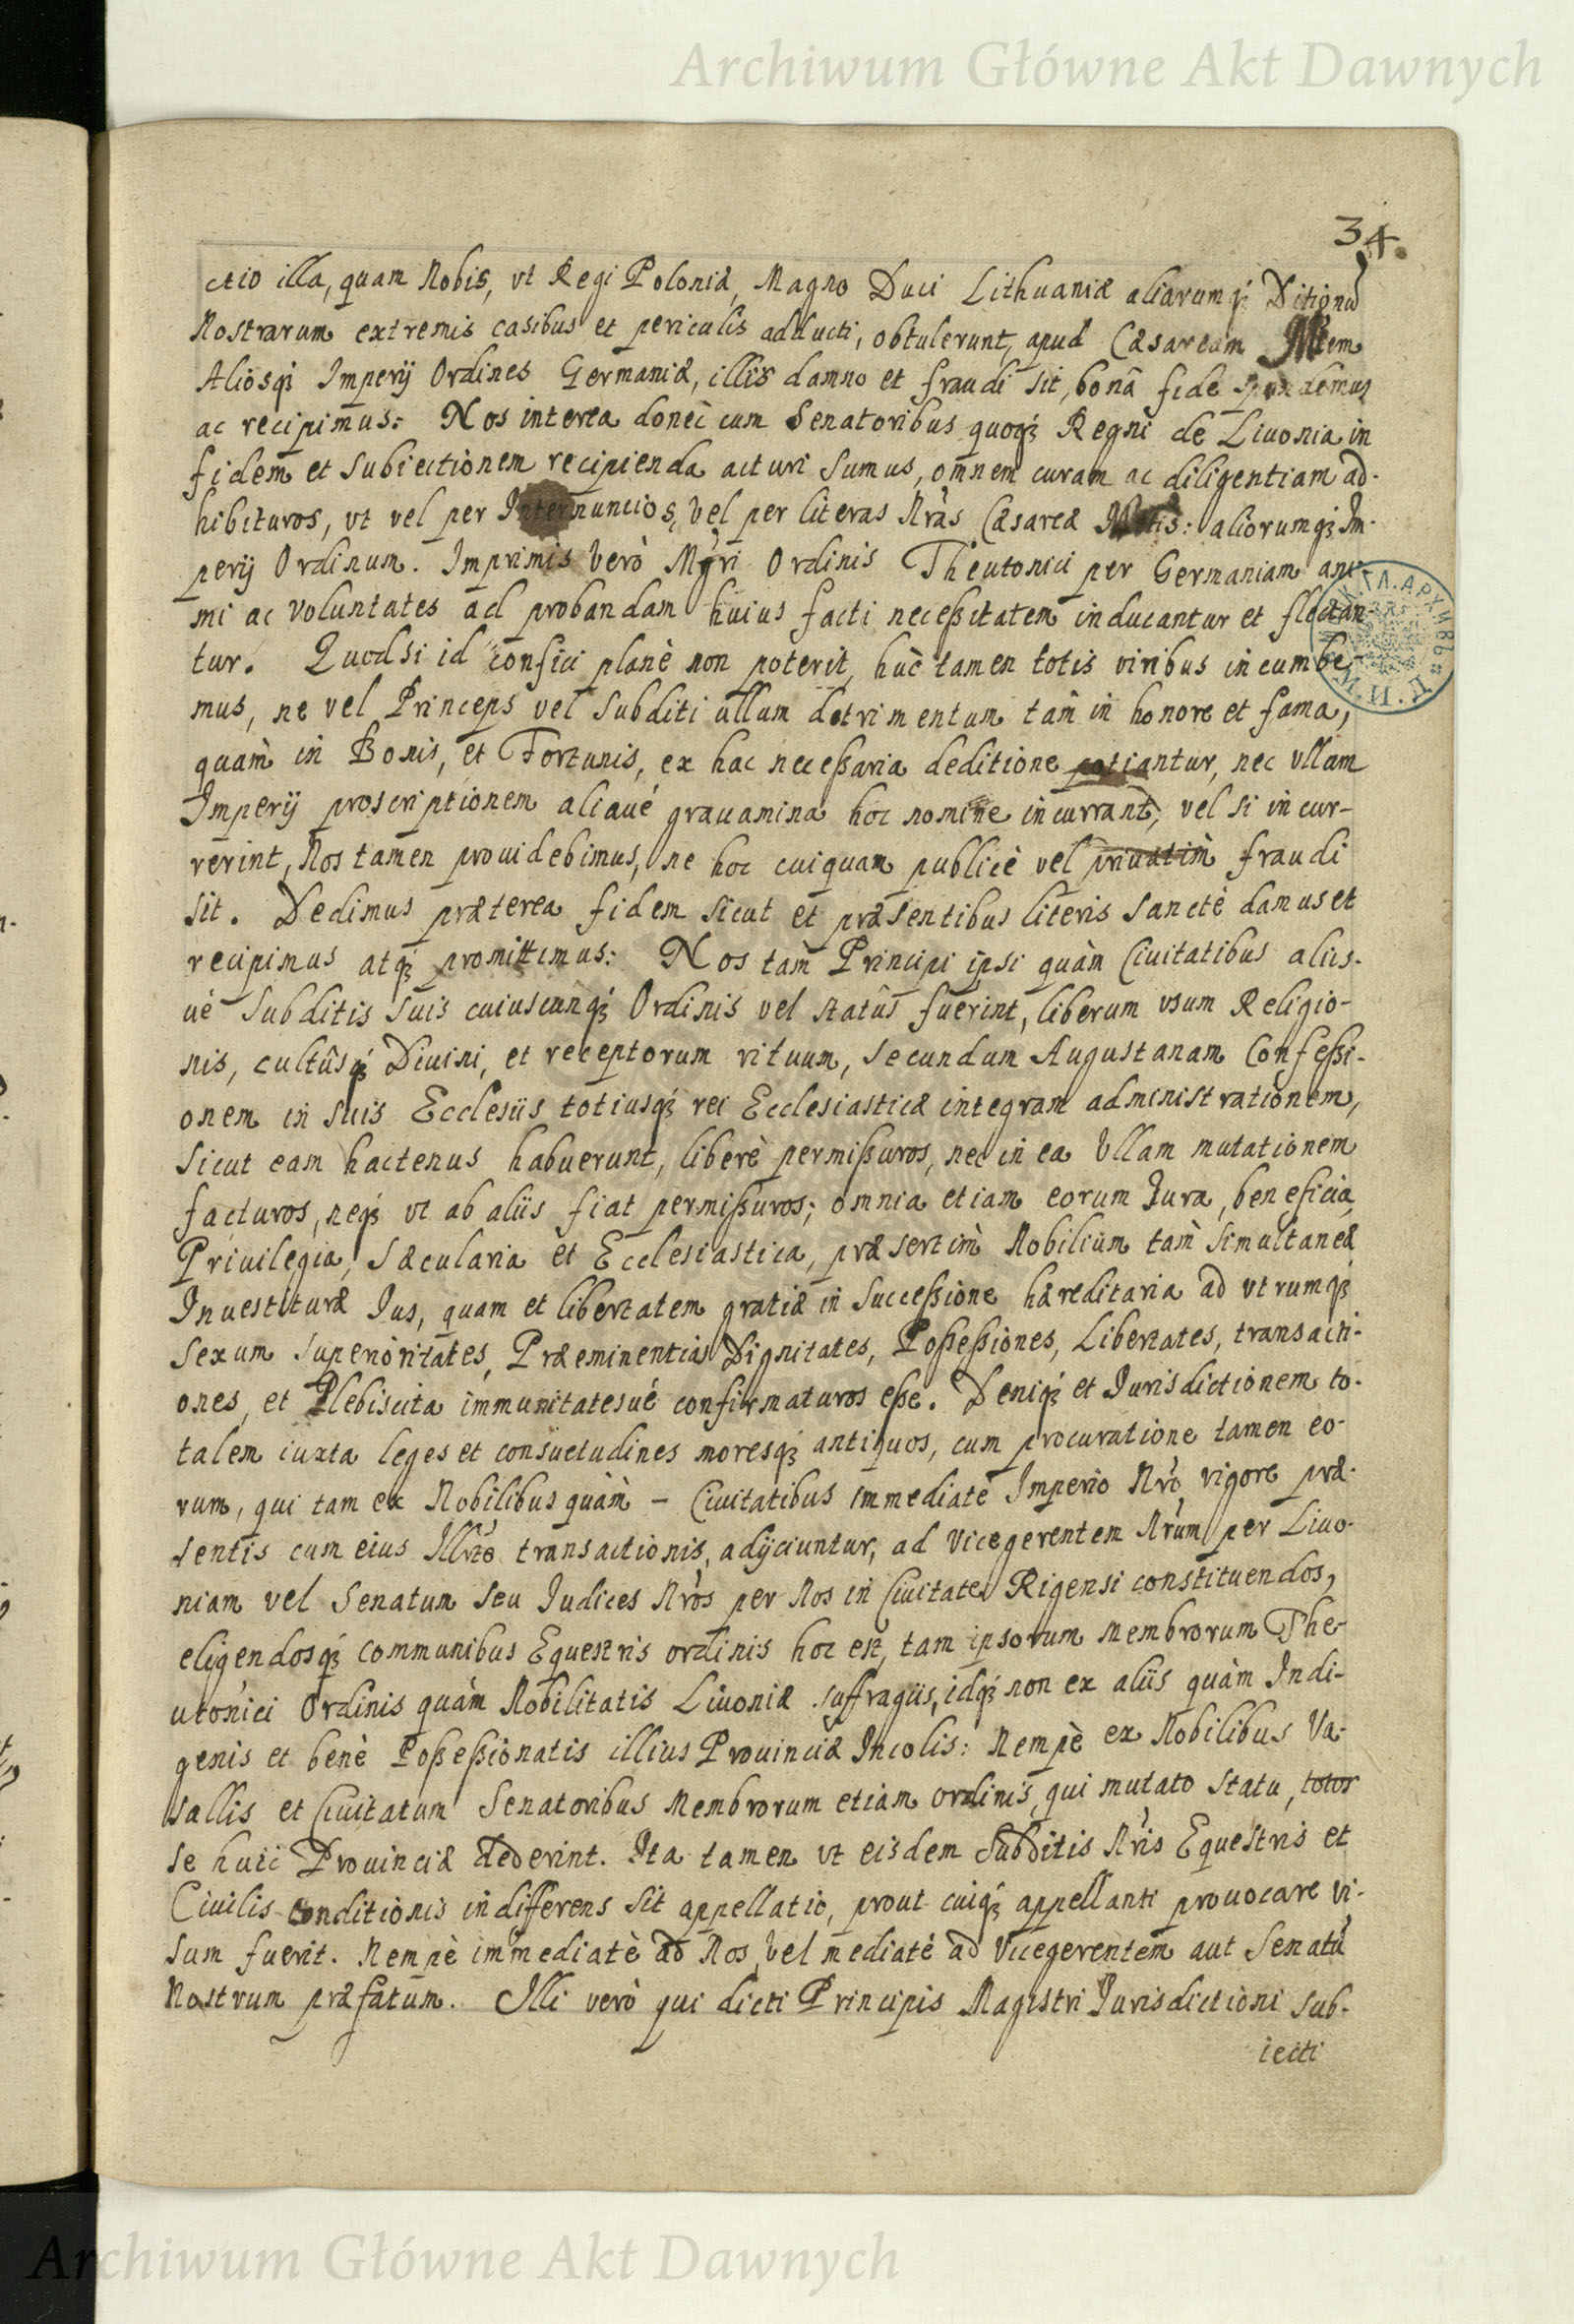 Archiwum Główne Akt Dawnych
34.
ctio illa, quam Nobis, vt Regi Poloniæ, Magno Duci Lithuaniæ aliarumq́ Ditionũ
Nostrarum extremis casibus et periculis adducti, obtulerunt, apud Cæsaream Mtem
Aliosq́ Imperÿ Ordines Germaniæ, illis damno et fraudi sit, bonâ fide spondemus
ac recipimus: Nos interea donec cum Senatoribus quoq́ Regni de Liuonia in
fidem et subiectionem recipienda acturi sumus, omnem curam ac diligentiam ad-
hibituros, vt vel per Internuncios, vel per literas Nrãs Cæsareæ Mttis: aliorumq́ Im-
perÿ Ordinum. Imprimis verò Mgri Ordinis Theutonici per Germaniam ani-
mi ac voluntates ad probandam huius facti necessitatem inducantur et flectan
tur. Quodsi id confici planè non poterit, huc tamen totis viribus incumbe-
mus, ne vel Princeps vel subditi ullum detrimentum tam in honore et fama,
quàm in Bonis, et Fortunis, ex hac necessaria deditione patiantur, nec vllam
Imperÿ proscriptionem aliaué grauamina hoc nomine incurrant, vel si incur-
rerint, Nos tamen prouidebimus, ne hoc cuiquam publicè vel priuatim fraudi
sit. Dedimus præterea fidem sicut et præsentibus literis sanctè damus et
recipimus atq́ promittimus: Nos tam Principi ipsi quàm Ciuitatibus aliis-
uè Subditis suis cuiuscunq́ Ordinis vel statûs fuerint, liberum vsum Religio-
nis, cultûsq́ Diuini, et receptorum rituum, secundum Augustanam Confessi-
onem in suis Ecclesiis totiusq́ rei Ecclesiasticæ integram administrationem,
sicut eam hactenus habuerunt, liberè permissuros, nec in ea vllam mutationem
facturos, neq́ vt ab aliis fiat permissuros; omnia etiam eorum Iura, beneficia,
Priuilegia, Sæcularia et Ecclesiastica, præsertim Nobilium tam simultaneæ
Inuestituræ Ius, quam et libertatem gratiæ in successione hæreditaria ad vtrumq́
sexum superioritates, Præeminentias Dignitates, Possessiones, Libertates, transacti-
ones, et Plebiscita immunitatesué confirmaturos esse. Deniq́ et Iurisdictionem to-
talem iuxta leges et consuetudines moresq́ antiquos, cum procuratione tamen eo-
rum, qui tam ex Nobilibus quàm – Ciuitatibus immediatè Imperio Nrõ vigore præ-
sentis cum eius Illrte transactionis, adÿciuntur, ad Vicegerentem Nrũm per Liuo-
niam vel Senatum seu Iudices Nrõs per Nos in Ciuitate Rigensi constituendos,
eligendosq́ communibus Equestris ordinis hoc est, tam ipsorum Membrorum The-
utonici Ordinis quàm Nobilitatis Liuoniæ suffragiis, idq́ non ex aliis quàm Indi-
genis et benè Possessionatis illius Prouinciæ Incolis: Nempè ex Nobilibus Va-
sallis et Ciuitatum Senatoribus Membrorum etiam ordinis, qui mutato statu, totos
se huic Prouinciæ dederint. Ita tamen vt eisdem Subditis Nris Equestris et
Ciuilis conditionis indifferens sit appellatio, prout cuiq́ appellanti prouocare vi-
sum fuerit. Nempè immediatè ad Nos, vel mediatè ad Vicegerentem aut Senatũ
Nostrum præfatum. Illi verò qui dicti Principis Magistri Iurisdictioni sub-
iecti
Archiwum Główne Akt Dawnych